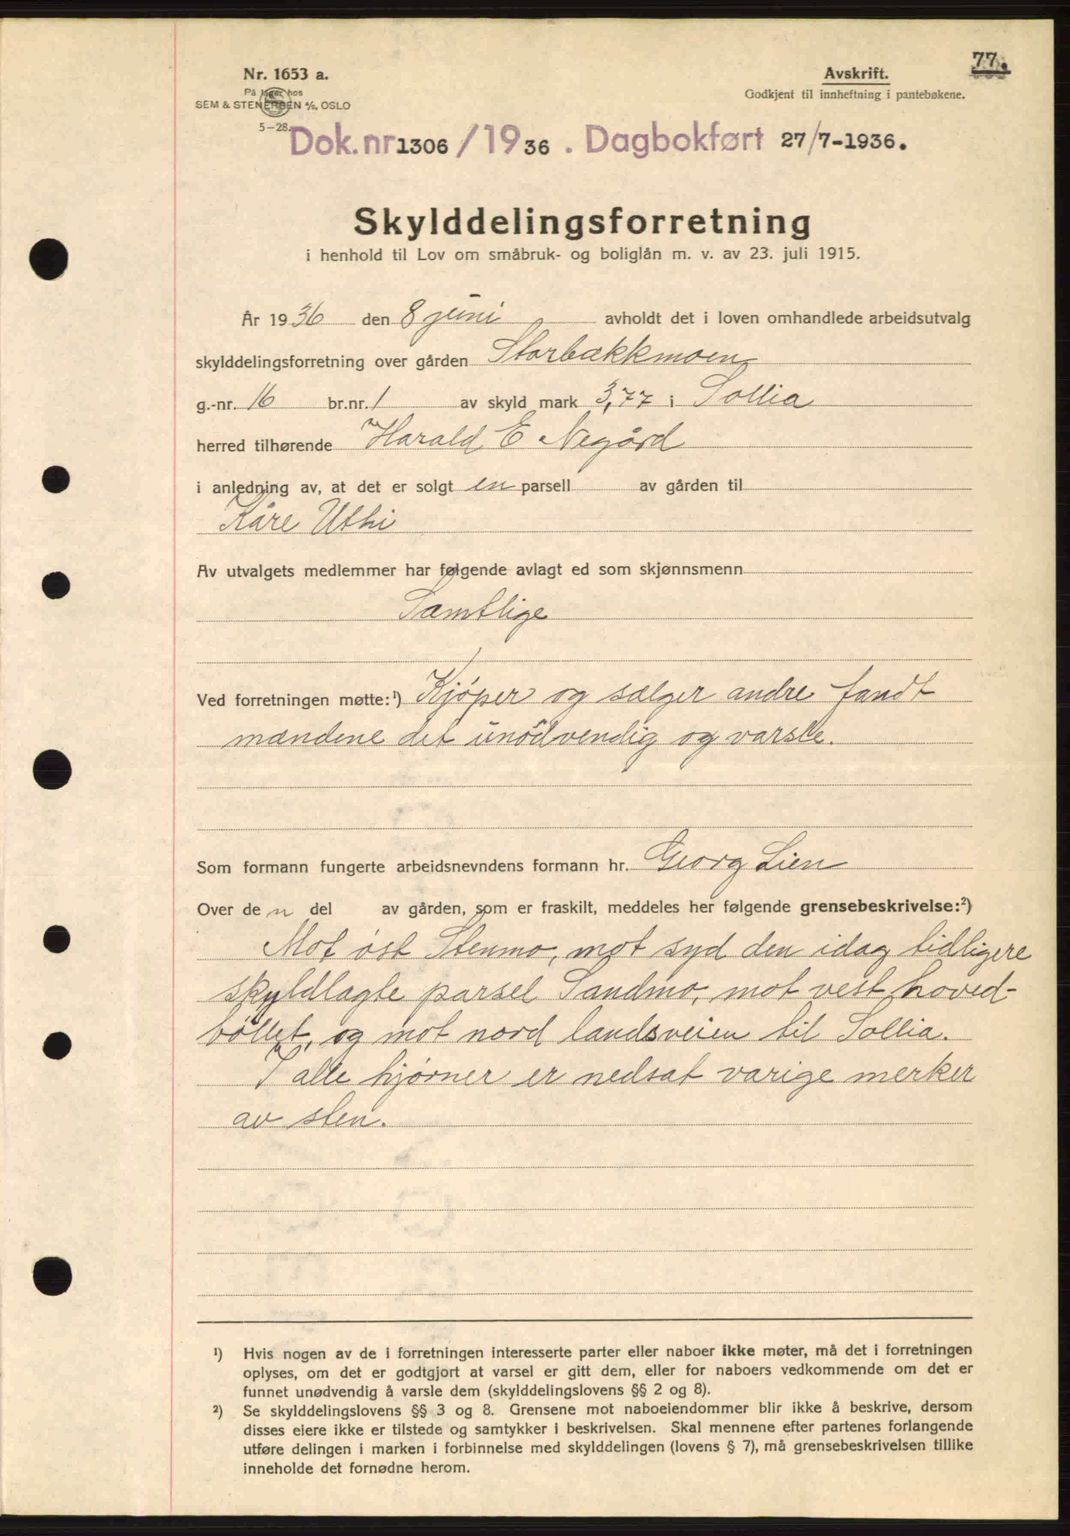 77.
Nr. 1653 a.
På lager hos
SEM & STENERSEN A/S, OSLO
5-28.
Avskrift.
Godkjent til innheftning i pantebøkene.
Dok. nr 1306 / 1936 . Dagbokført 27/7-1936.
Skylddelingsforretning
i henhold til Lov om småbruk- og boliglån m. v. av 23. juli 1915.
År 1936 den 8 juni avholdt det i loven omhandlede arbeidsutvalg
skylddelingsforretning over gården Storbækkmoen
g.-nr. 16 br.nr. 1 av skyld mark 3,77 i Sollia
herred tilhørende Harald E Negård
i anledning av, at det er solgt en parsell av gården til
Kåre Uthi
Av utvalgets medlemmer har følgende avlagt ed som skjønnsmenn
Samtlige
Ved forretningen møtte:¹) Kjöper og sælger andre fandt
mændene det unödvendig og varsle.
Som formann fungerte arbeidsnevndens formann hr. Georg Lien
Over den del av gården, som er fraskilt, meddeles her følgende grensebeskrivelse:²)
Mot öst Stenmo, mot syd den idag tidligere
skyldlagte parsel Sandmo, mot vest hoved-
böllet, og mot nord landsveien til Sollia.
I alle hjörner er nedsat varige merker
av sten.
¹) Hvis nogen av de i forretningen interesserte parter eller naboer ikke møter, må det i forretningen
oplyses, om det er godtgjort at varsel er gitt dem, eller for naboers vedkommende om det er
funnet unødvendig å varsle dem (skylddelingslovens §§ 2 og 8).
²) Se skylddelingslovens §§ 3 og 8. Grensene mot naboeiendommer blir ikke å beskrive, dersom
disses eiere ikke er tilstede og samtykker i beskrivelsen. Skal mennene efter partenes forlangende
utføre delingen i marken i forbinnelse med skylddelingen (lovens § 7), må grensebeskrivelsen tillike
inneholde det fornødne herom.